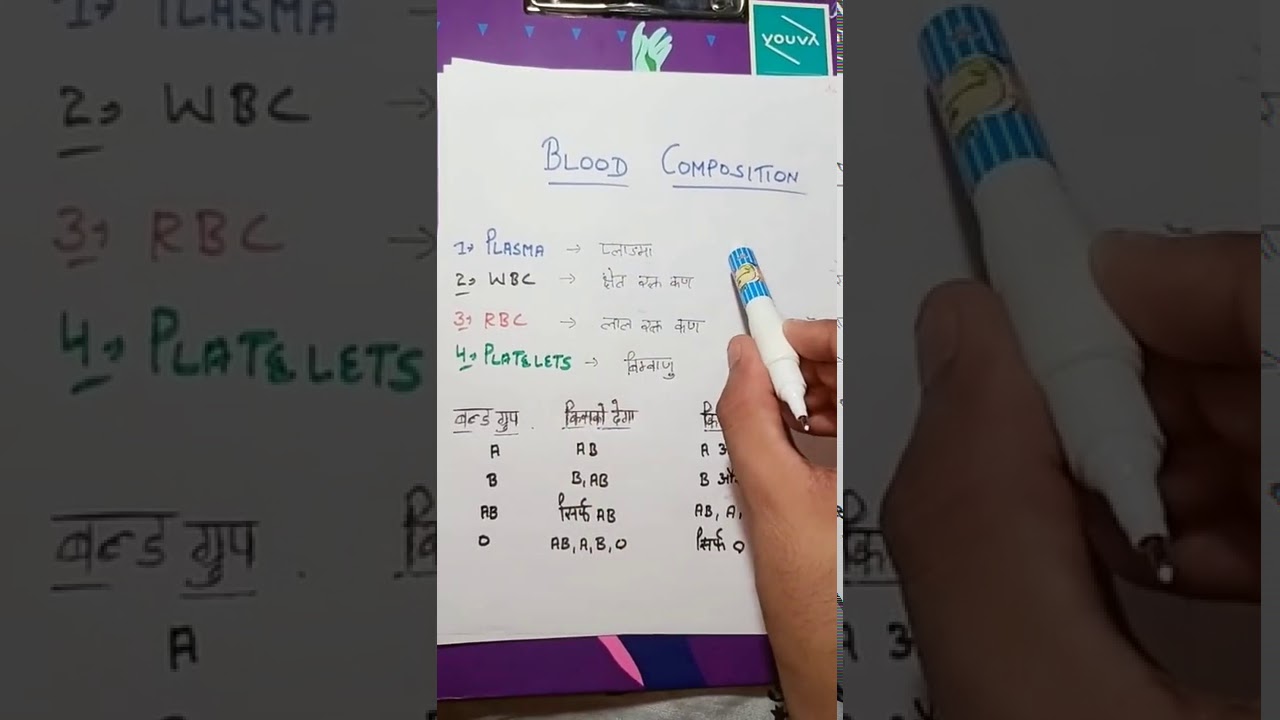 youva
BLOOD COMPOSITION
1, PLASMA → प्लाज्मा
2, WBC → श्वेत रक्त कण
3, RBC → लाल रक्त कण
4, PLATELETS → बिम्बाणु
ब्लड ग्रुप . किसको देगा कि
A AB A औ
B B, AB B और
AB सिर्फ AB AB, A,
O AB, A, B, O सिर्फ O